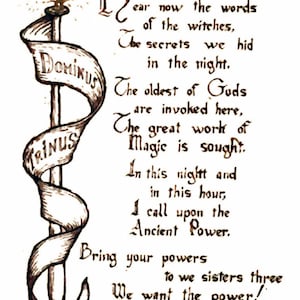 Hear now the words
of the witches,
The secrets we hid
in the night.
The oldest of Gods
are invoked here,
The great work of
Magic is sought.
In this night and
in this hour,
I call upon the
Ancient Power.
Bring your powers
to we sisters three
We want the power!
DOMINUS
TRINUS